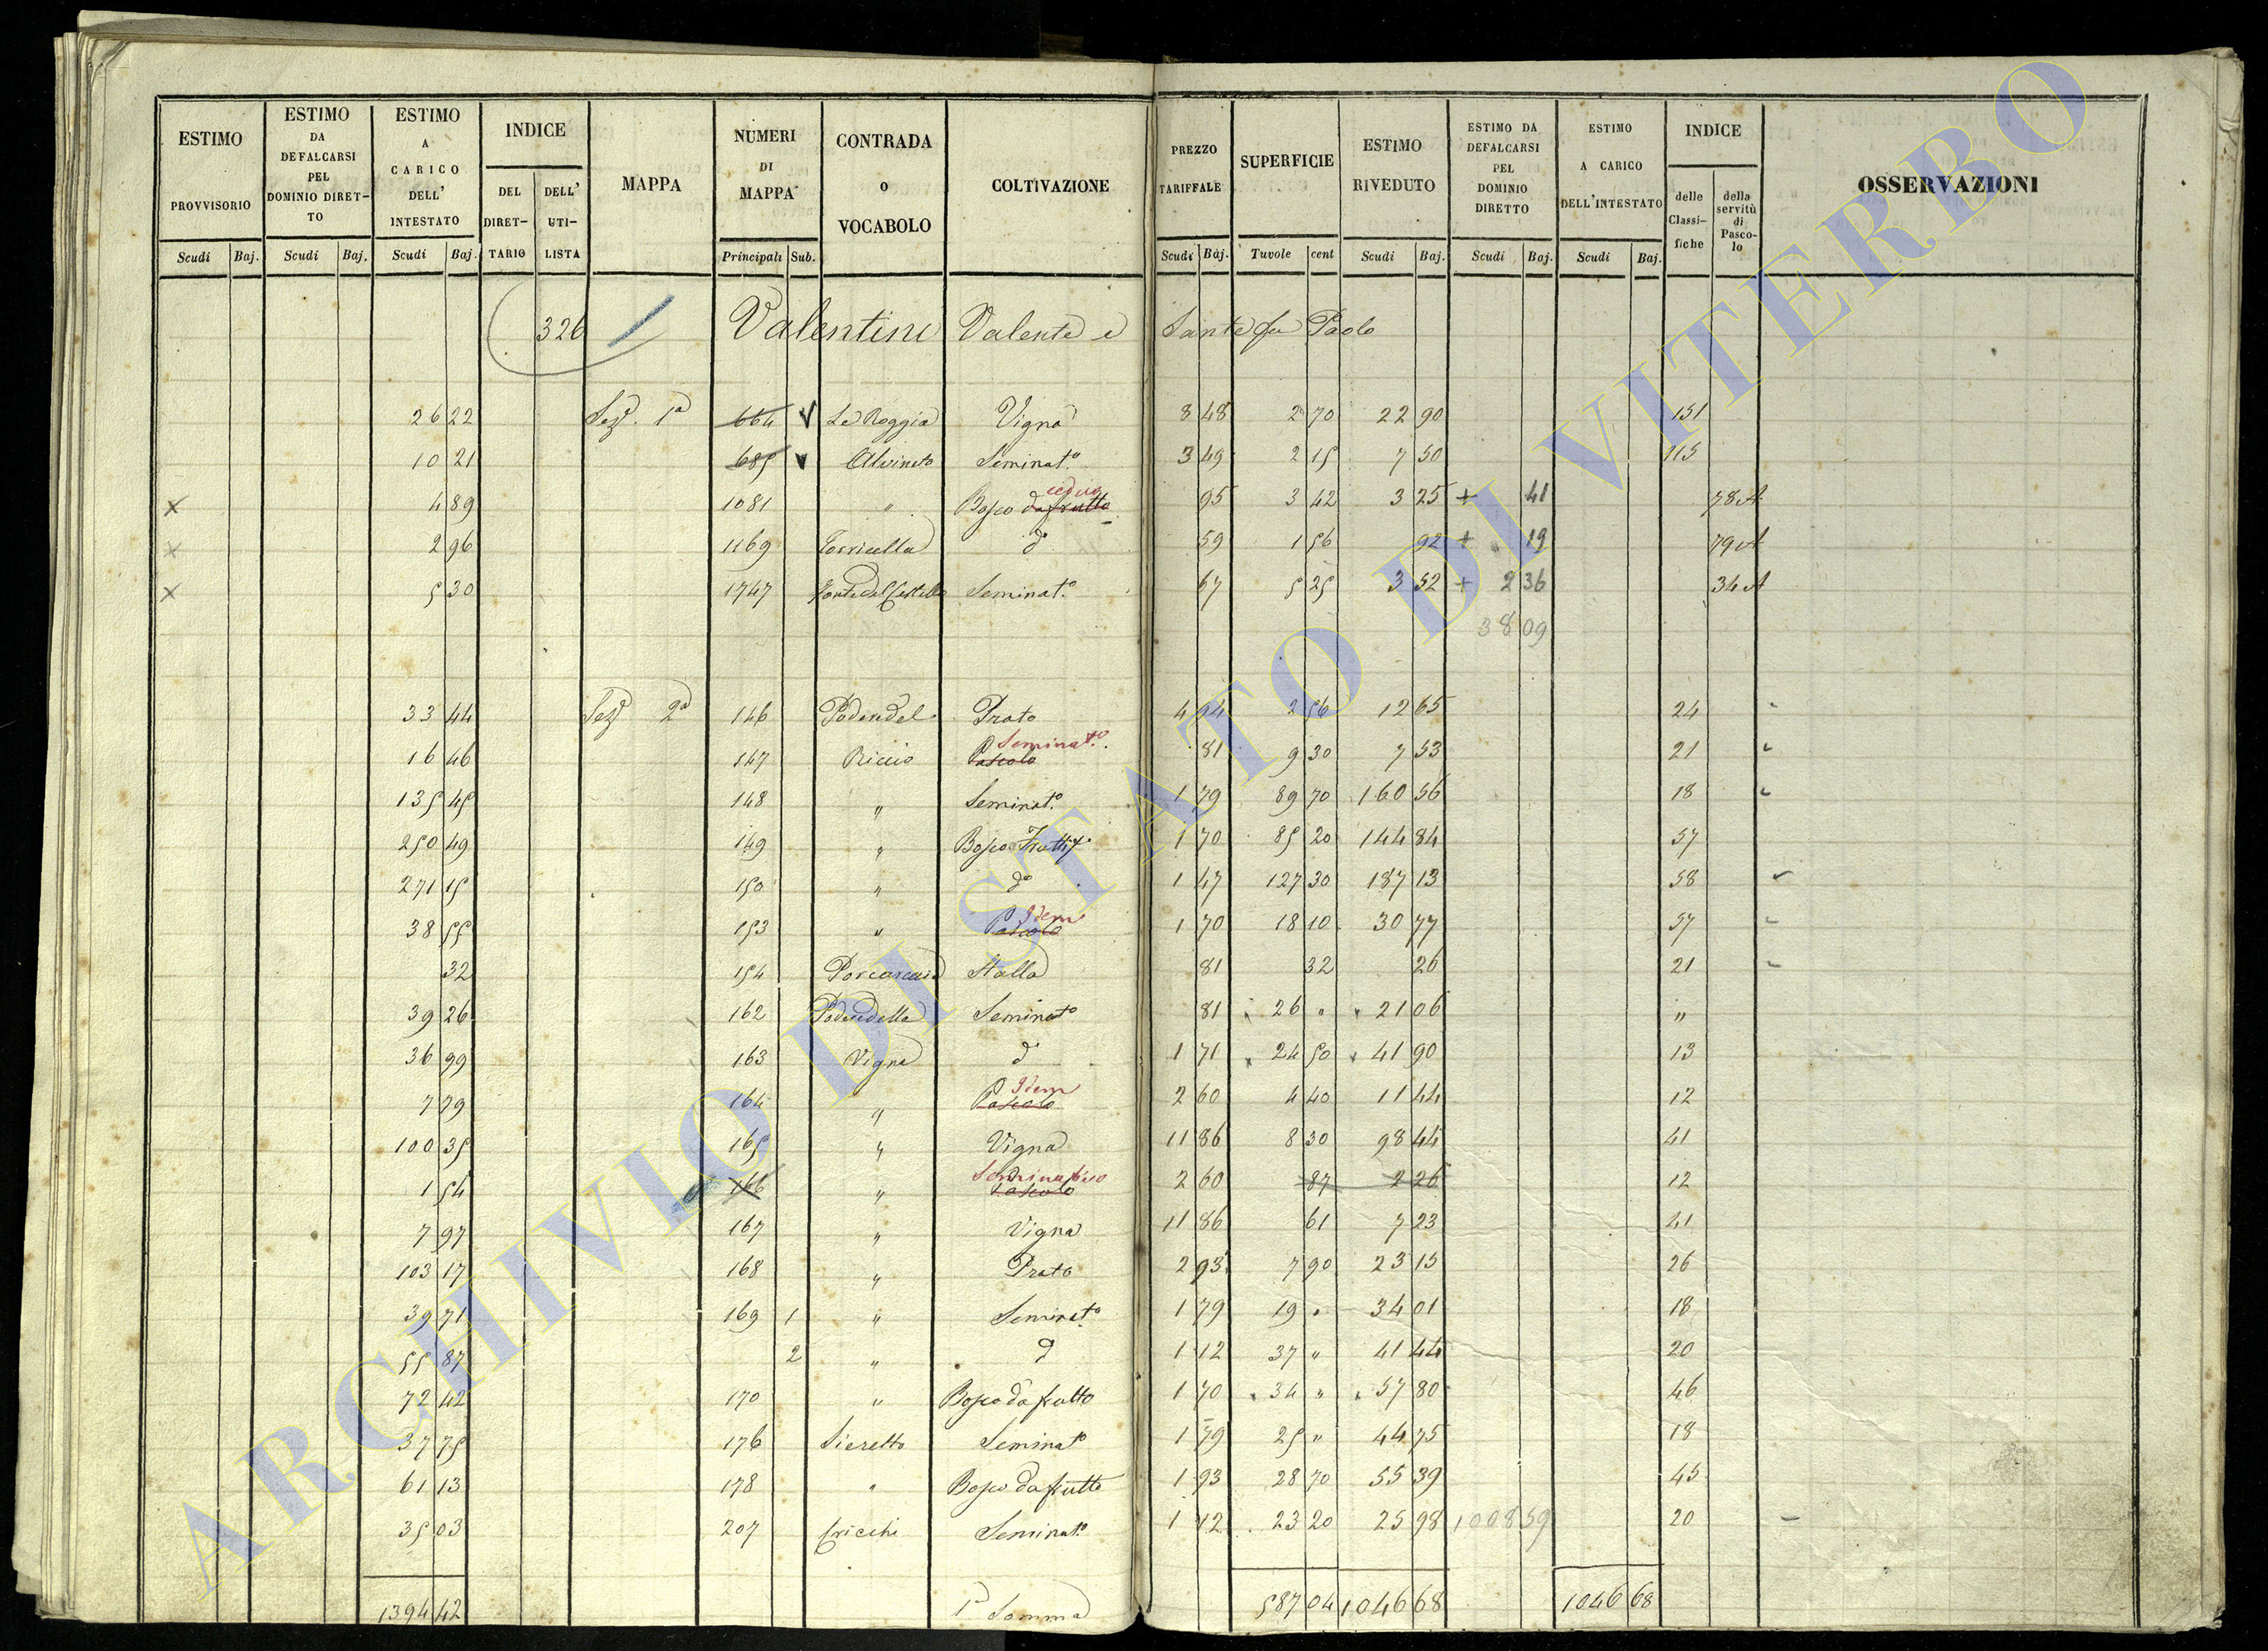 ESTIMO PROVVISORIO Scudi Baj. ESTIMO DA DEFALCARSI PEL DOMINIO DIRETTO Scudi Baj. ESTIMO A CARICO DELL' INTESTATO Scudi Baj. INDICE DEL DIRETTARIO DELL' UTILISTA MAPPA NUMERI DI MAPPA Principali Sub. CONTRADA O VOCABOLO COLTIVAZIONE PREZZO TARIFFALE Scudi Baj. SUPERFICIE Tuvole cent ESTIMO RIVEDUTO Scudi Baj. ESTIMO DA DEFALCARSI PEL DOMINIO DIRETTO Scudi Baj. ESTIMO A CARICO DELL'INTESTATO Scudi Baj. INDICE delle Classifiche della servitù di Pascolo OSSERVAZIONI
326 Valentini Valente e Sante fu Paolo
26 22 Sez. 1a 664 Le Roggia Vigna 8 48 2 70 22 90 151
10 21 685 Alvineto Seminat.o 3 49 2 15 7 50 115
x 4 89 1081 " Bosco da frutto ceduo 95 3 42 3 25 + 41 78 A
x 2 96 1169 Torricella do 59 1 56 92 + 19 79 A
x 5 30 1747 Seminat.o 67 5 25 3 52 + 2 36 34 A
38 09
33 44 Sez. 2a 146 Poder del Prato 4 94 2 56 12 65 24
16 46 147 Riccio Pascolo Seminat.o 81 9 30 7 53 21
135 45 148 " Seminat.o 1 79 89 70 160 56 18
250 49 149 " Bosco Fruttif.o 1 70 85 20 144 84 57
271 15 150 " do 1 47 127 30 187 13 58
38 55 153 " Pascolo Idem 1 70 18 10 30 77 57
32 154 Stalla 81 32 26 21
39 26 162 Poder della Seminato 81 26 " 21 06 "
36 99 163 Vigna do 1 71 24 50 41 90 13
7 79 164 " Pascolo Idem 2 60 4 40 11 44 12
100 35 165 " Vigna 11 86 8 30 98 44 41
1 54 166 " Pascolo Seminativo 2 60 87 2 26 12
7 97 167 " Vigna 11 86 61 7 23 41
103 17 168 " Prato 2 93 7 90 23 15 26
39 71 169 1 " Seminat.o 1 79 19 " 34 01 18
55 87 2 " do 1 12 37 " 41 44 20
72 42 170 " Bosco da frutto 1 70 34 " 57 80 46
37 75 176 Sieretto Seminat.o 1 79 25 " 44 75 18
61 13 178 " Bosco da frutto 1 93 28 70 55 39 45
35 03 207 Cricchi Seminat.o 1 12 23 20 25 98 1008 59 20
1394 42 1a Somma 587 04 1046 68 1046 68
ARCHIVIO DI STATO DI VITERBO